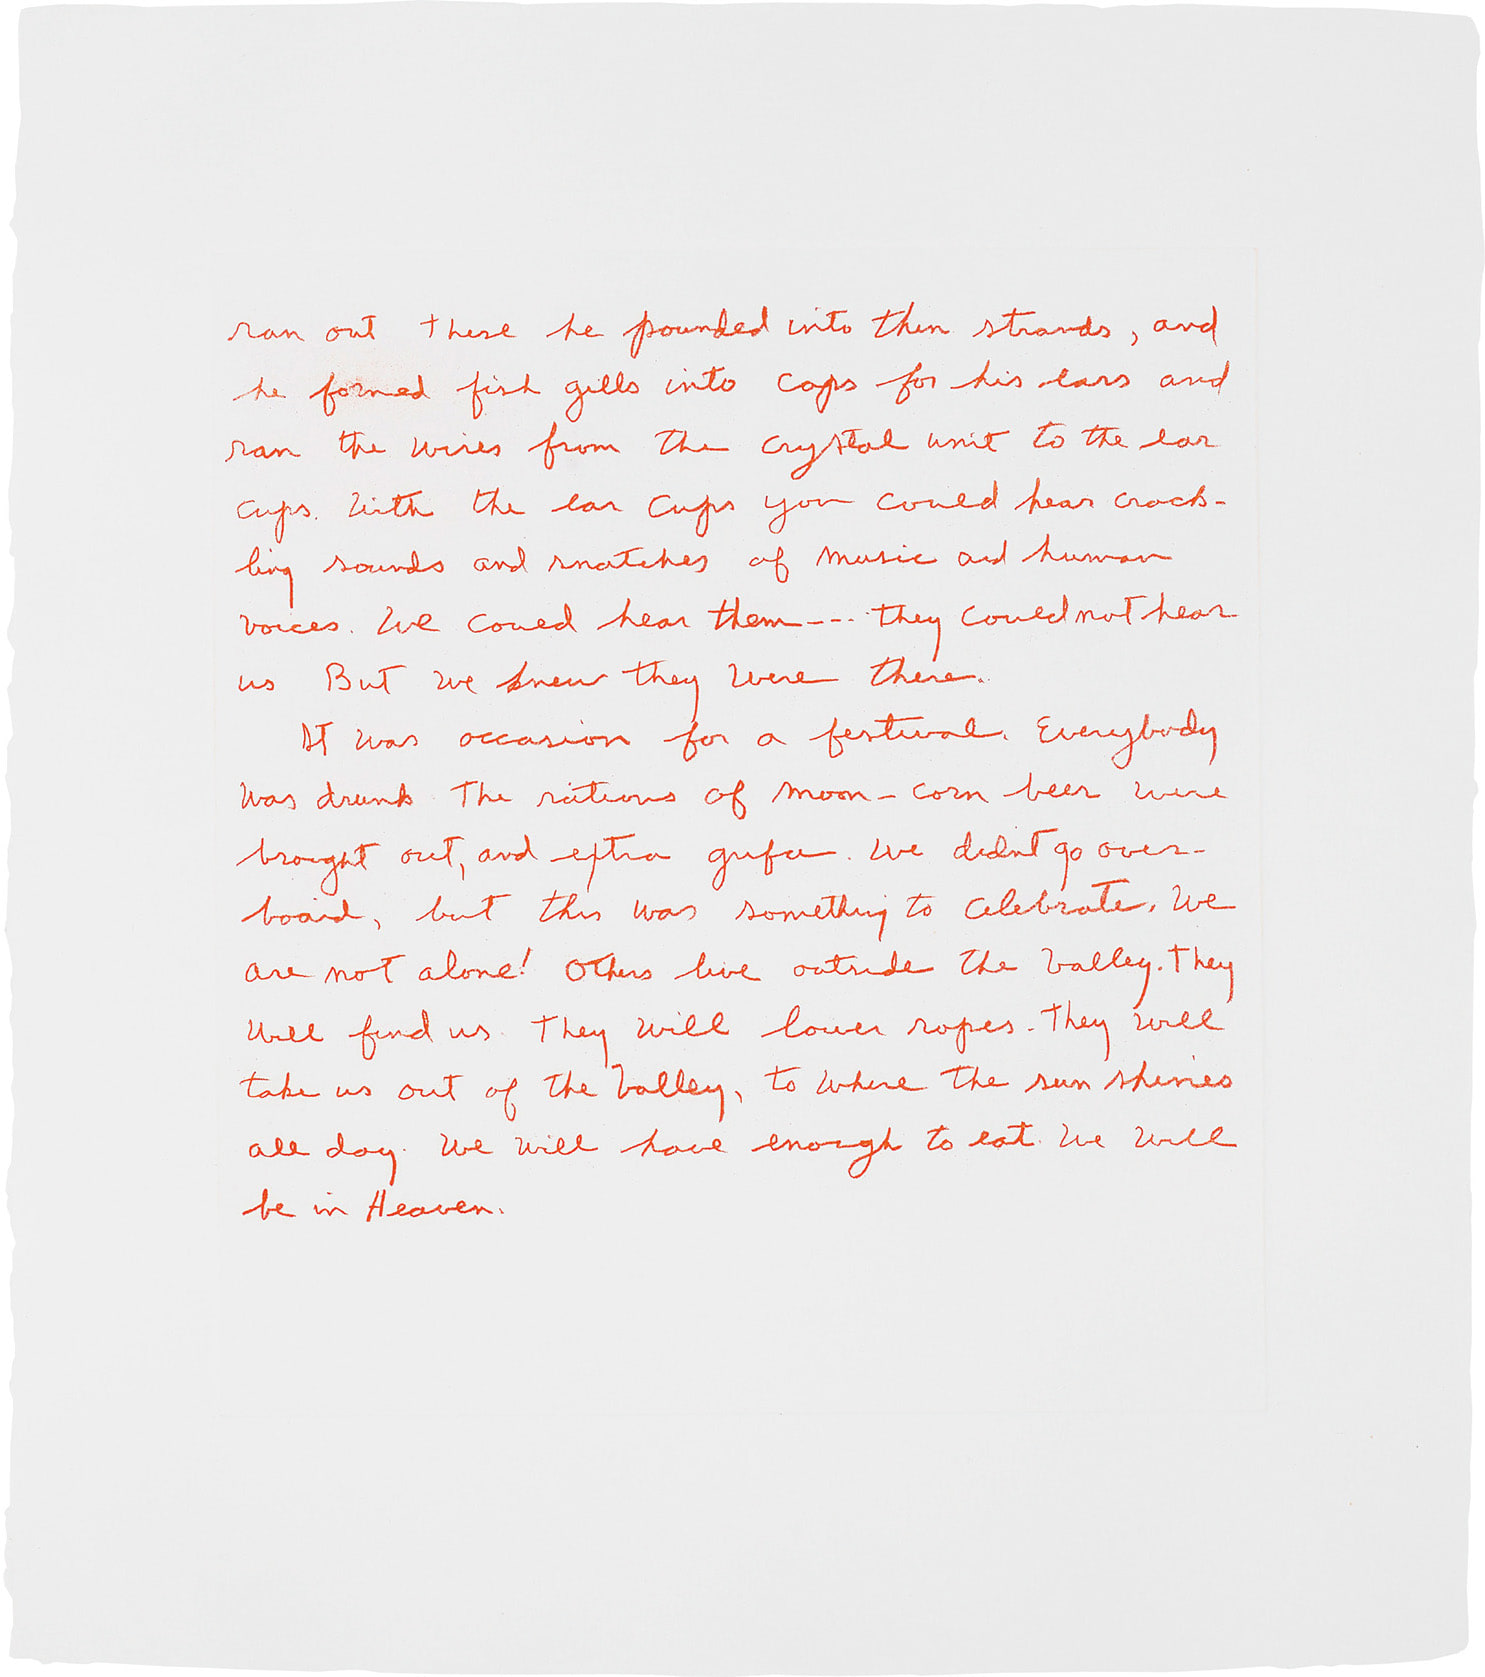 ran out these he pounded into thin strands, and
he formed fish gills into cops for his ears and
ran the wires from the crystal unit to the ear
cups. With the ear cups you could hear crack-
ling sounds and snatches of music and human
voices. We could hear them---they could not hear
us But we knew they were there.
It was occasion for a festival. Everybody
was drunk The rations of moon-corn beer were
brought out, and extra grifa. We didn't go over-
board, but this was something to celebrate. We
are not alone! Others live outside the Valley. They
will find us. They will lower ropes. They will
take us out of the Valley, to where the sun shines
all day. We will have enough to eat. We will
be in Heaven.